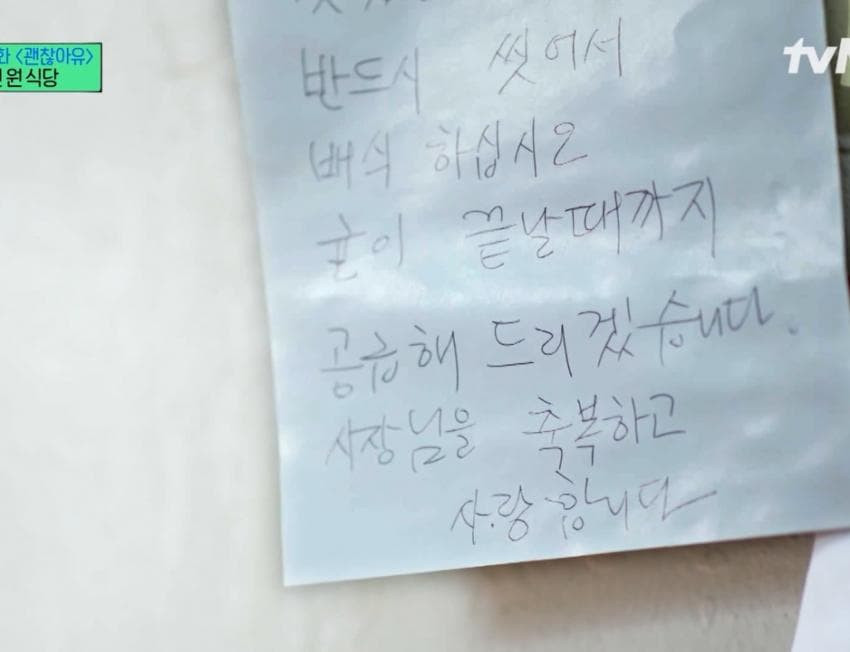 화 <괜찮아유>
원식당
tvN
반드시 씻어서
배식 하십시오
굴이 끝날때까지
공급해 드리겠습니다.
사장님을 축복하고
사랑합니다